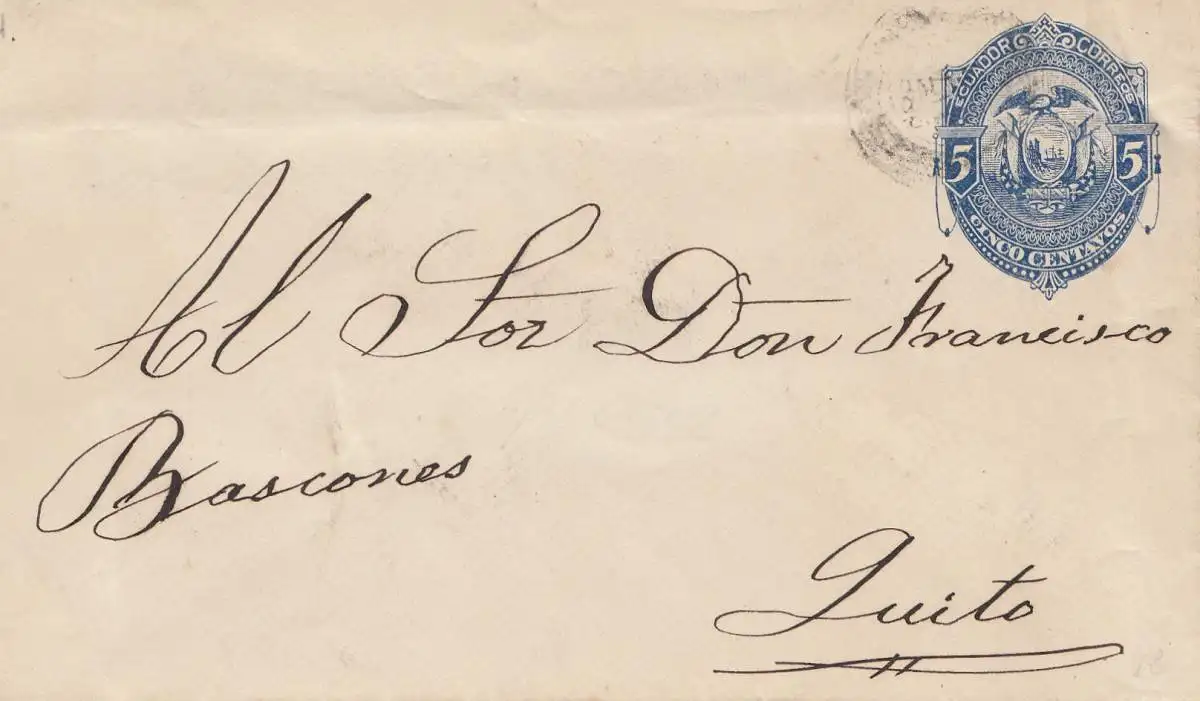 ECUADOR CORREOS
5 5
CINCO CENTAVOS
Al Sor Don Francisco
Bascones
Quito